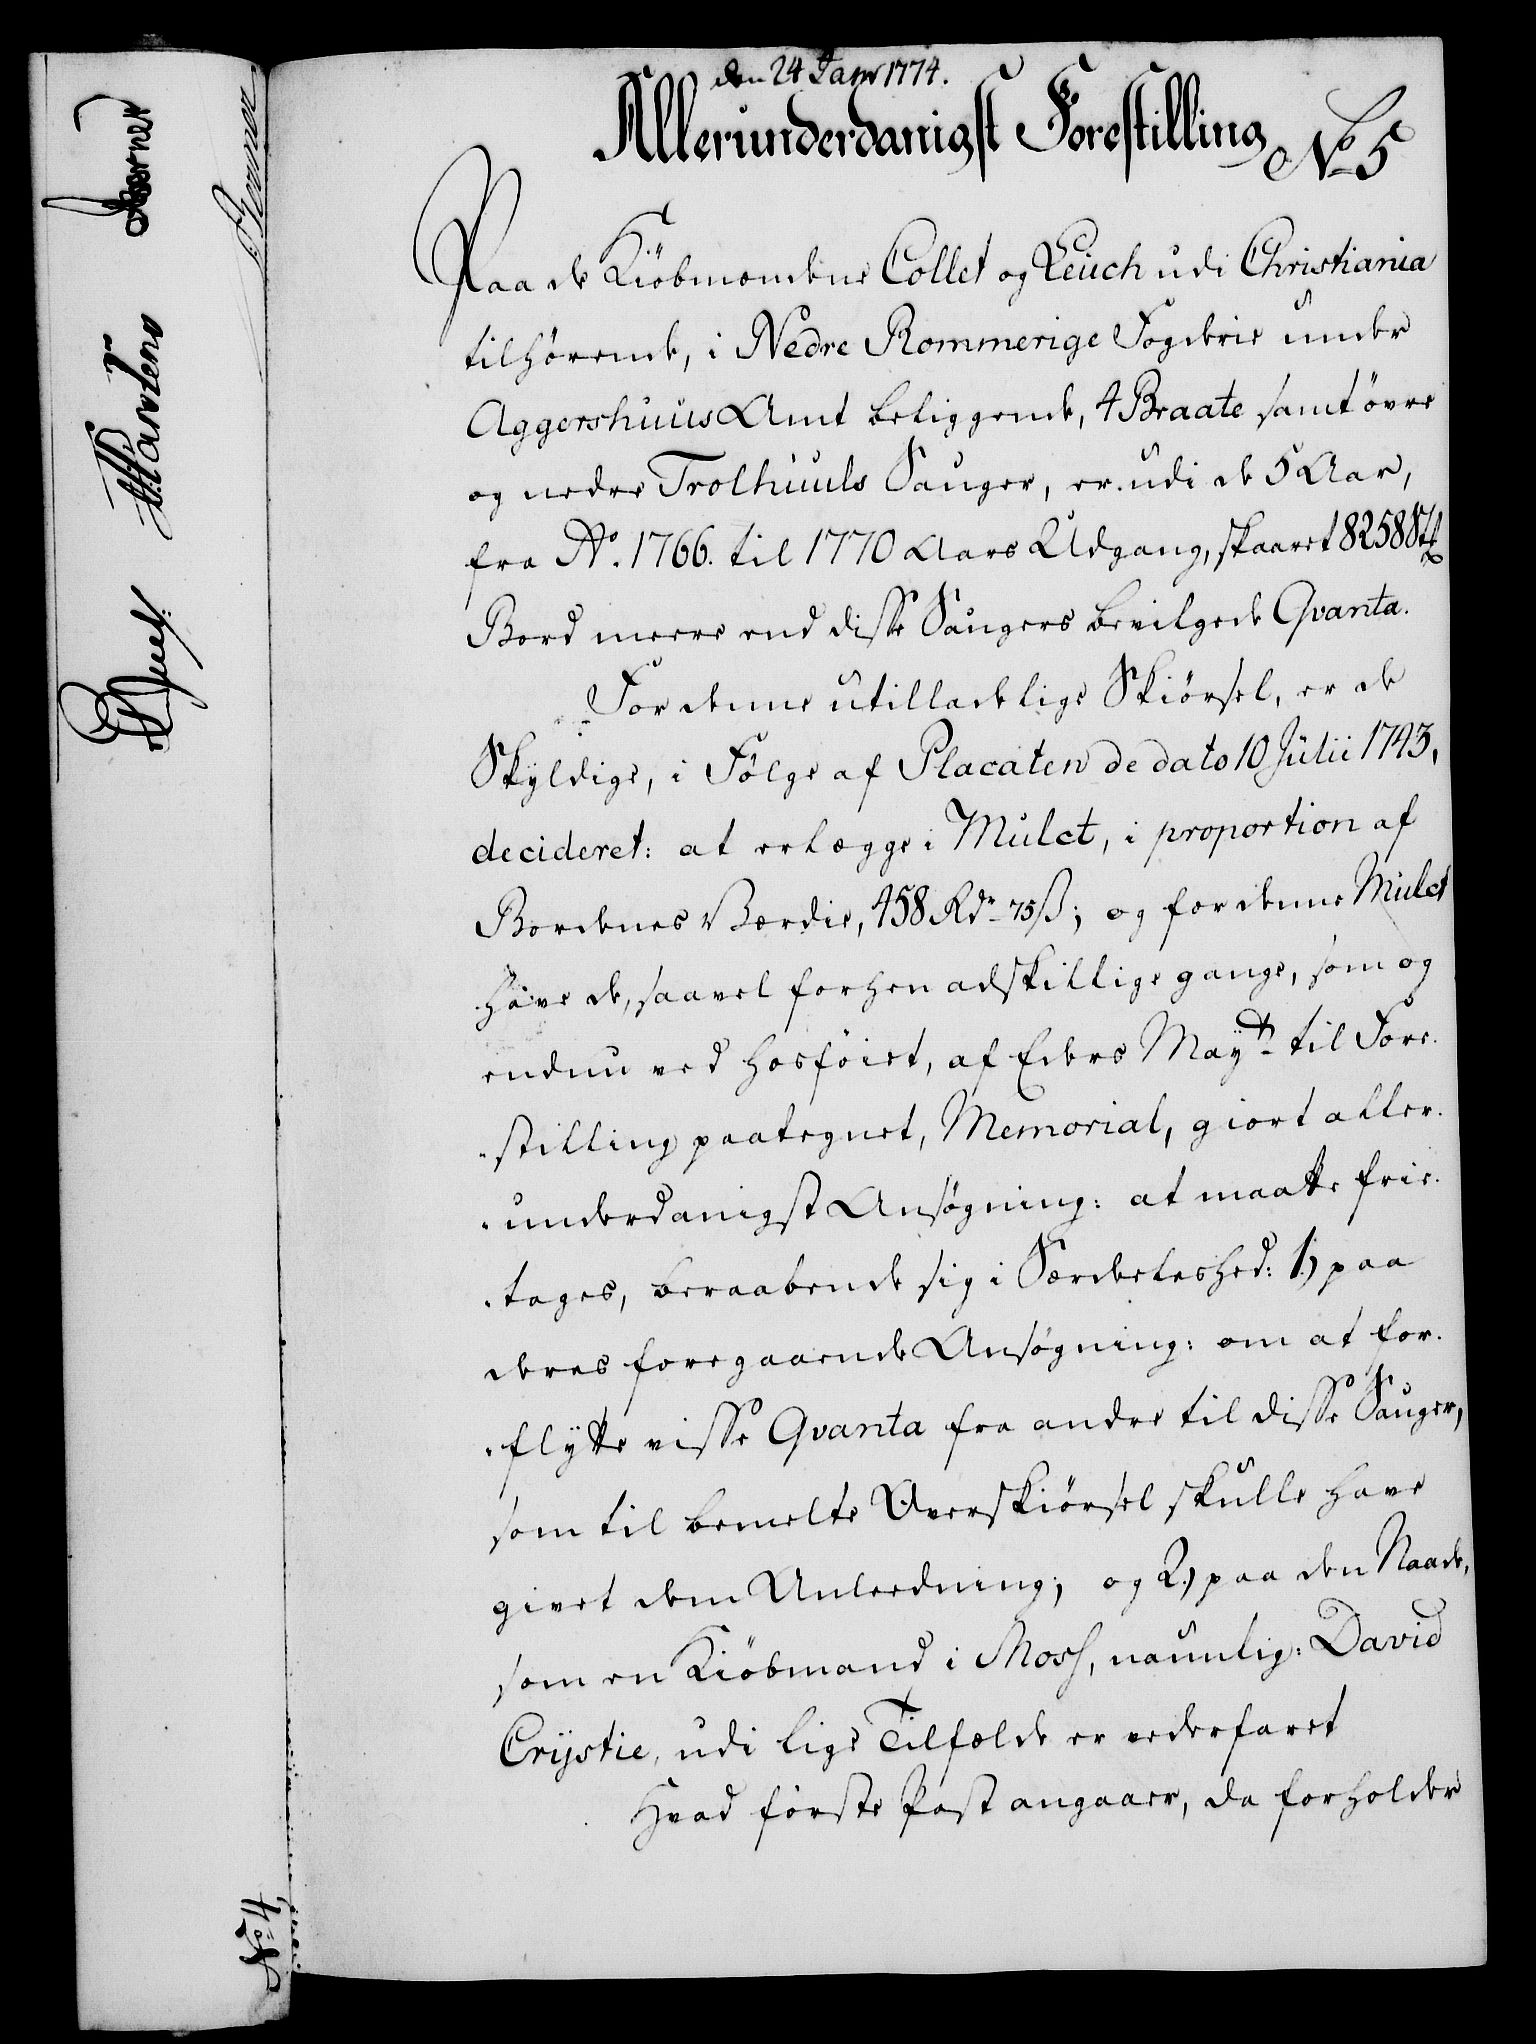 den 24 Janr 1774.
Allerunderdanigst Forestilling
No 5
Paa de Kiöbmændene Collet og Leuch udi Christiania
tilhörende, i Nedre Rommerige Fogderie under
Aggershuus Amt beliggende, 4 Braate samt övre
og nedre Trolhuuls Sauger, er udi de 5 Aar,
fra Ao. 1766. til 1770 Aars Udgang, skaaret 18258 Stk
Bord meere end disse Saugers bevilgede Qvanta.
For denne utilladelige Skiörsel, er de
Skyldige, i Fölge af Placaten de dato 10 Julii 1743,
decideret: at erlægge i Mulct, i proportion af
Bordenes Værdie, 458 Rdr 75 ß; og for denne Mulct
have de, saavel forhen adskillige gange, som og
endnu ved hosföiet, af Eders Mayt til Fore-
-stilling paategnet, Memorial, giort aller-
-underdanigst Ansögning: at maatte frie-
-tages, beraabende sig i Særdeleshed: 1.) paa
deres foregaaende Ansögning: om at for-
-flytte visse Qvanta fra andre til disse Sauger,
som til bemelte Overskiörsel skulle have
givet dem Anledning; og 2.) paa den Naade,
som en Kiöbmand i Moss, naunlig: David
Crystie, udi lige Tilfælde er vederfaret
Hvad förste Post angaaer, da forholder
No 4